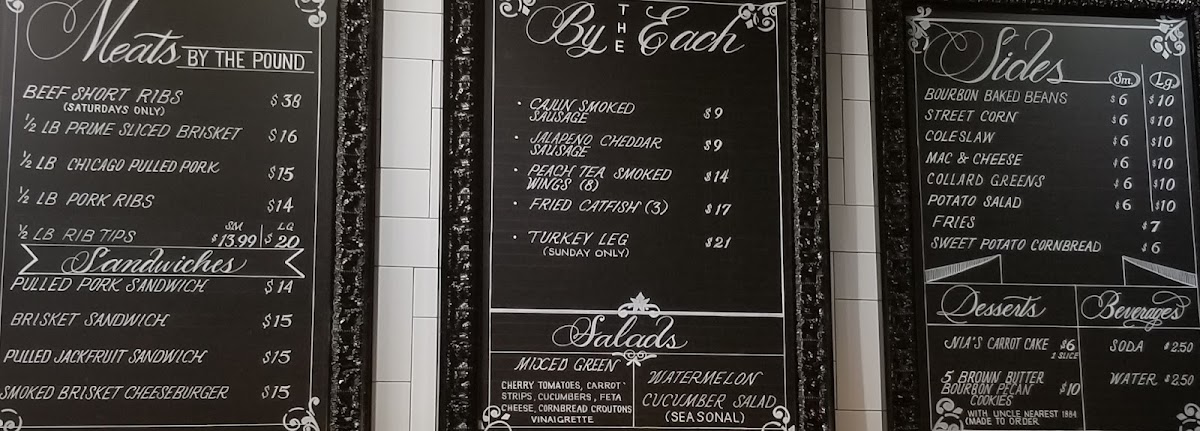 Meats BY THE POUND
BEEF SHORT RIBS $38
(SATURDAYS ONLY)
½ LB PRIME SLICED BRISKET $16
½ LB CHICAGO PULLED PORK $15
½ LB PORK RIBS $14
SM. LG
½ LB RIB TIPS $13.99 $20
Sandwiches
PULLED PORK SANDWICH $14
BRISKET SANDWICH $15
PULLED JACKFRUIT SANDWICH $15
SMOKED BRISKET CHEESEBURGER $15
By THE Each
• CAJUN SMOKED
SAUSAGE $9
• JALAPENO CHEDDAR
SAUSAGE $9
• PEACH TEA SMOKED
WINGS (8) $14
• FRIED CATFISH (3) $17
• TURKEY LEG $21
(SUNDAY ONLY)
Salads
MIXED GREEN
CHERRY TOMATOES, CARROT
STRIPS, CUCUMBERS, FETA
CHEESE, CORNBREAD CROUTONS
VINAIGRETTE
WATERMELON
CUCUMBER SALAD
(SEASONAL)
Sides Sm. Lg.
BOURBON BAKED BEANS $6 $10
STREET CORN $6 $10
COLESLAW $6 $10
MAC & CHEESE $6 $10
COLLARD GREENS $6 $10
POTATO SALAD $6 $10
FRIES $7
SWEET POTATO CORNBREAD $6
Desserts
NIA'S CARROT CAKE $6
1 SLICE
5 BROWN BUTTER
BOURBON PECAN $10
COOKIES
WITH UNCLE NEAREST 1884
(MADE TO ORDER
Beverages
SODA $2.50
WATER $2.50